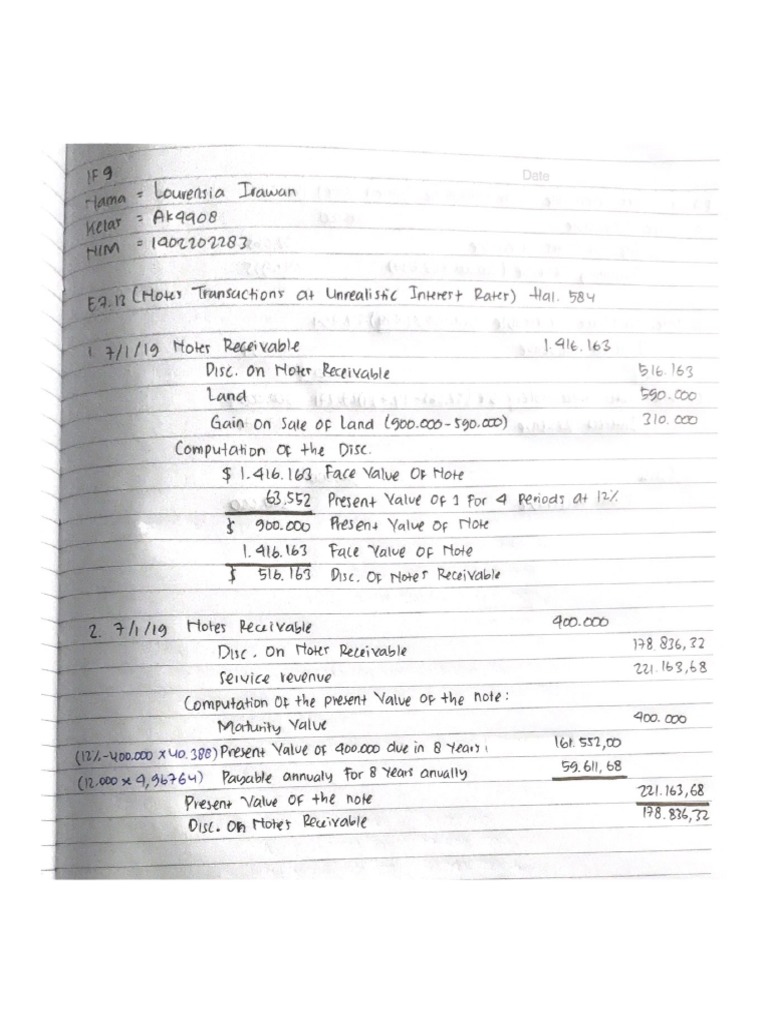 IF 9
Date
Nama = Lourensia Irawan
Kelas = AK4408
NIM = 1402202283
E7.13 (Notes Transactions at Unrealistic Interest Rates) Hal. 584
1. 7/1/19 Notes Receivable 1.416.163
Disc. on Notes Receivable 516.163
Land 590.000
Gain on Sale of Land (900.000-590.000) 310.000
Computation of the Disc.
$ 1.416.163 Face Value Of Note
63.552 Present Value Of 1 For 4 Periods at 12%
$ 900.000 Present Value Of Note
1.416.163 Face Value Of Note
$ 516.163 Disc. Of Notes Receivable
2. 7/1/19 Notes Receivable 400.000
Disc. on Notes Receivable 178.836,32
Service revenue 221.163,68
Computation Of the present Value Of the note :
Maturity Value 400.000
(12%-400.000 x 40.388) Present Value of 400.000 due in 8 Years 161.552,00
(12.000 x 4,96764) Payable annualy For 8 Years anually 59.611,68
Present Value Of the note 221.163,68
Disc. On Notes Receivable 178.836,32